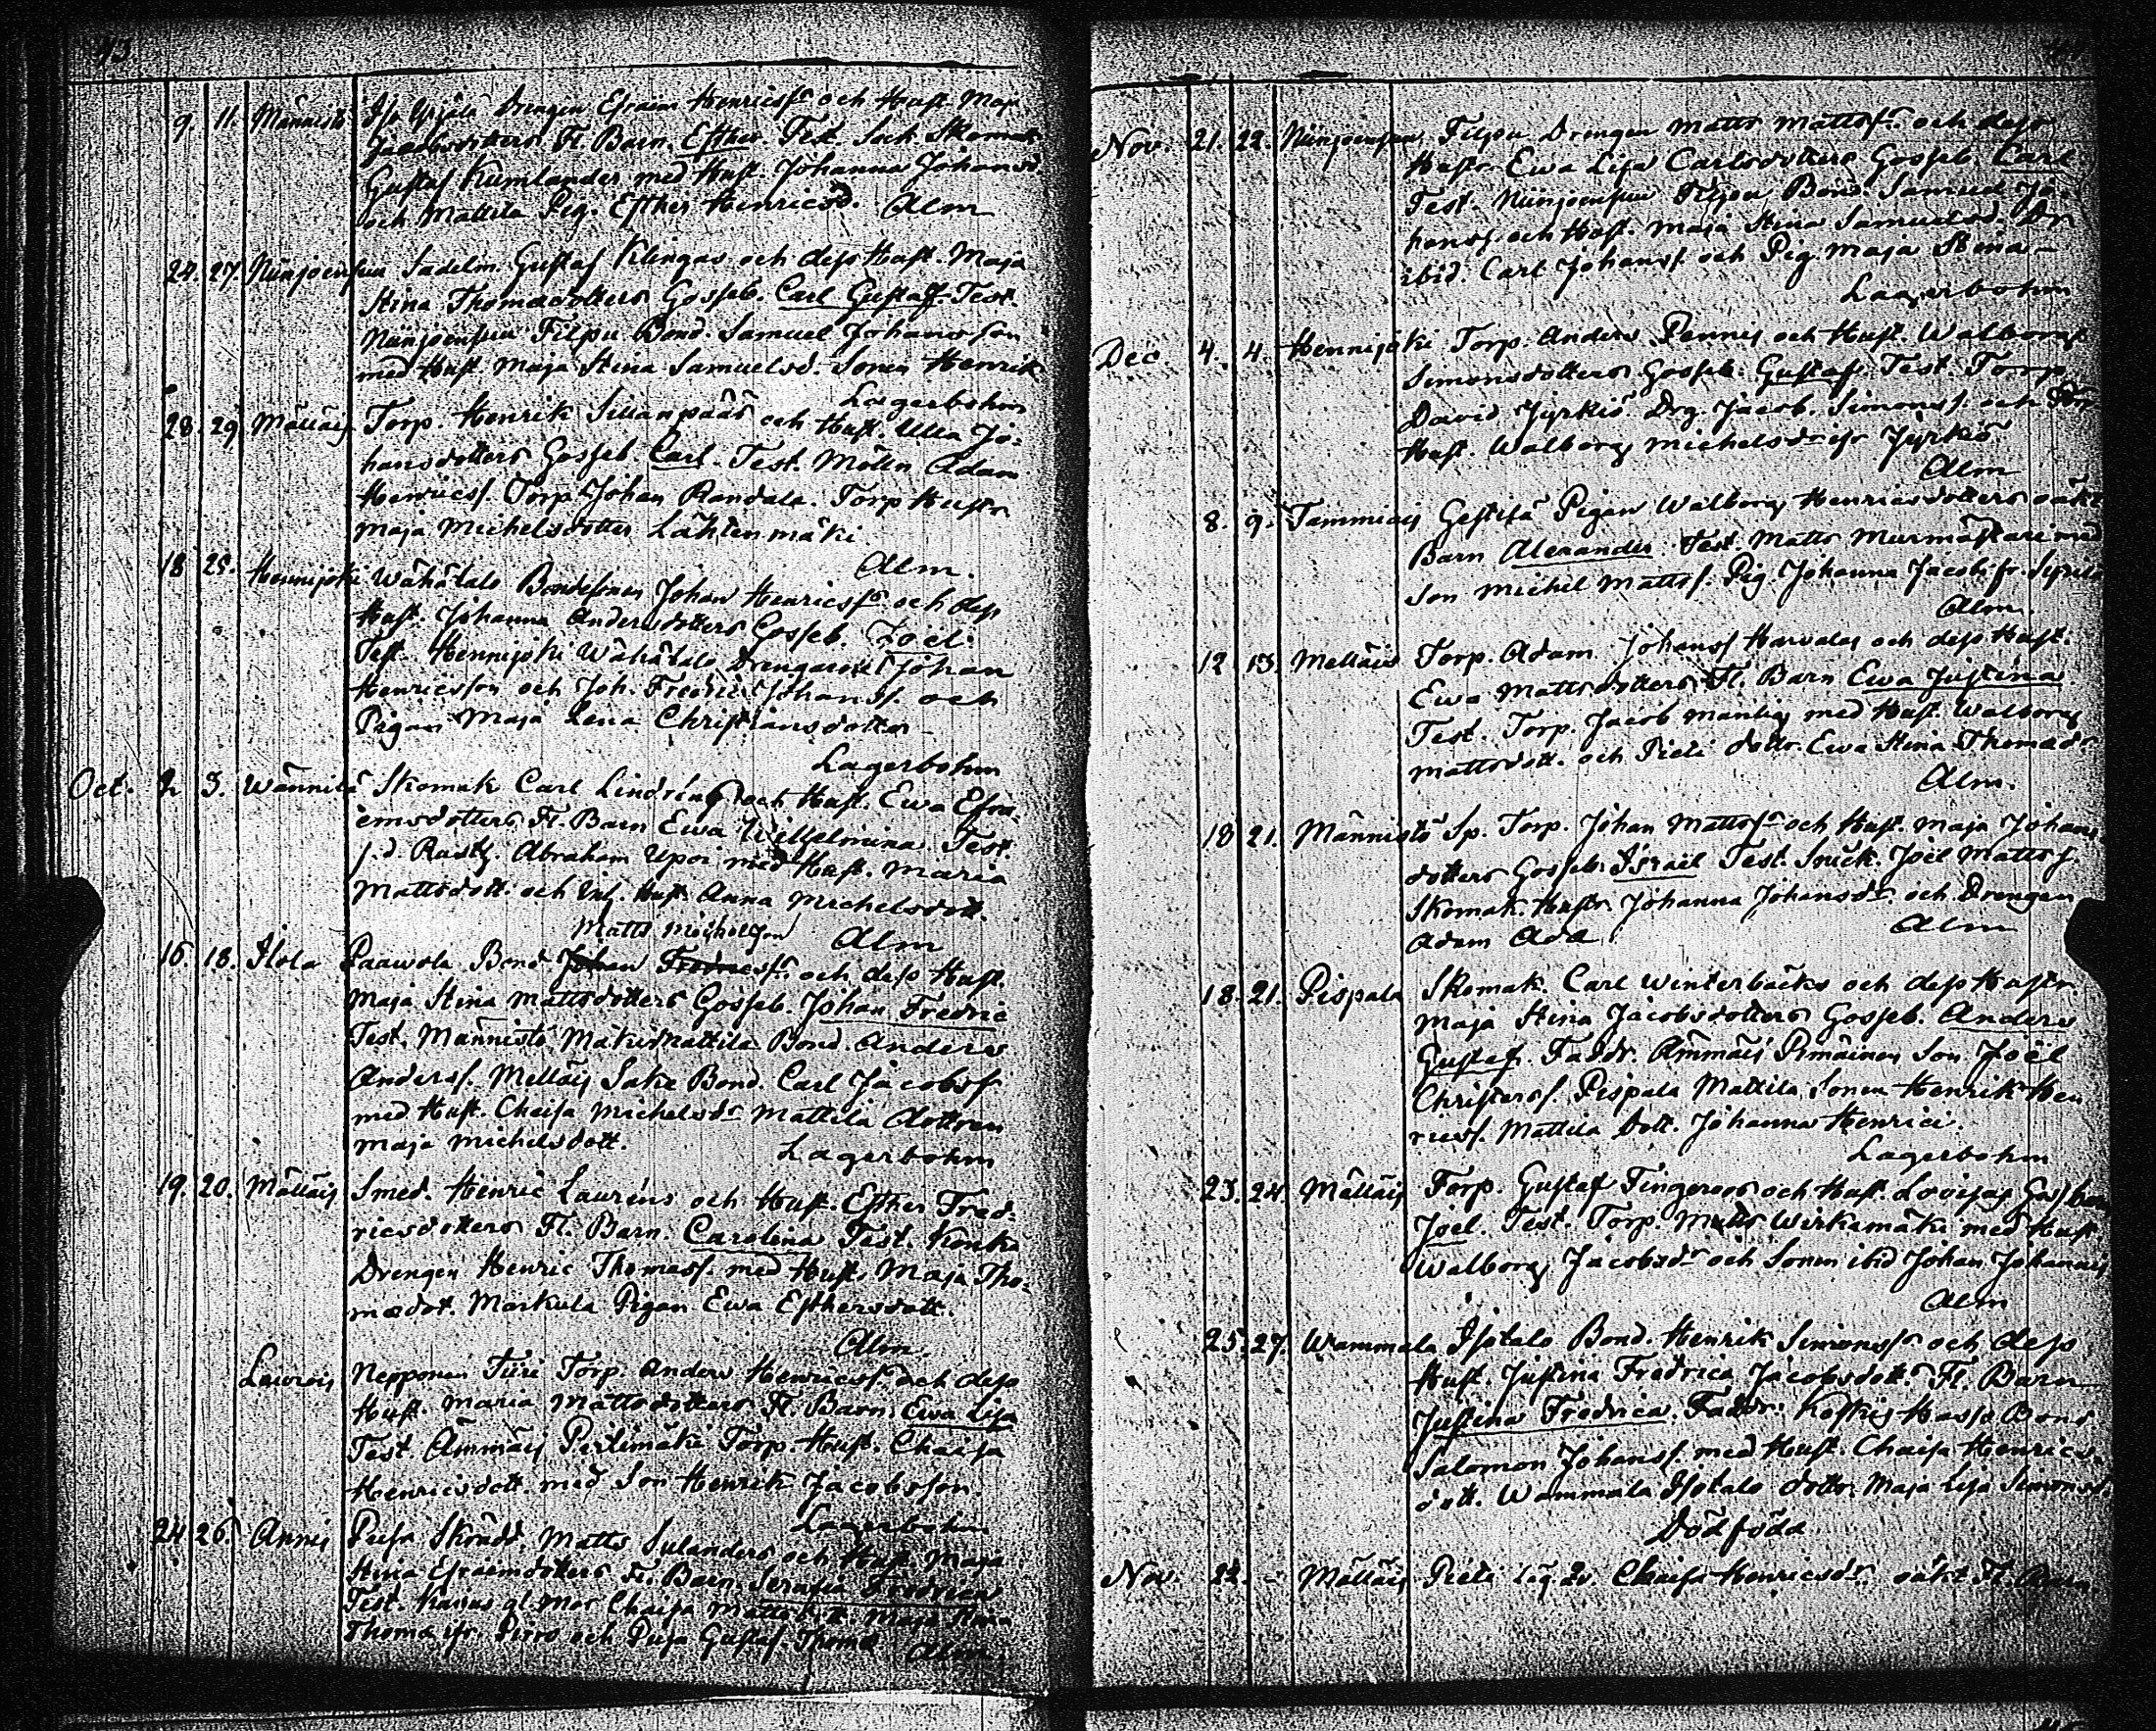 43
9. 11. Männistö Iso Yrjälä Drengen Efraim Henricss:s och Hust. Maja
Jacobsdotters Fl. Barn. Esther. Test. Sock. Skomak.
Gustaf Kumlander med Hust. Johanna Johansd.
och Mattila Pig. Esther Henricsd. Alm
24. 27. Niinjoensuu Sadelm. Gustaf Klingas och dess Hust. Maja
Stina Thomædotters Gosseb. Carl Gustaf. Test.
Niinjoensuu Filpu Bond. Samuel Johansson
med Hust. Maja Stina Samuelsd. Sonen Henrik
Lagerbohm
28. 29. Mälläis Torp. Henrik Sillanpääs och Hust. Ulla Jo-
hansdotters Gosseb. Carl. Test. Mölln. Adam
Henricss. Torp. Johan Randala. Torp. Hustr.
Maja Michelsdotter Lähtenmäki
Alm.
18 25. Hennijoki Wähätalo Bondesonen Johan Henricss:s och dess
Hust. Johanna Andersdotters Gosseb. Joel.
Test. Hennijoki Wähätalo Drengarne Johan
Henricsson och Joh. Fredric Johanss. och
Pigan Maja Lena Christiansdotter
Lagerbohm
Oct. 2 3. Wännilä Skomak. Carl Lindrings och Hust. Ewa Efra-
emsdotters Fl. Barn Ewa Wilhelmina. Test.
f. d. Rusth. Abraham Upoi med Hust. Maria
Mattsdott. och Inh. Hust. Anna Michelsdott.
Matts Michelsson Alm
16. 18. Ilola Paawola Bond. Johan Fredricss:s och dess Hust.
Maja Stina Mattsdotters Gosseb. Johan Fredric
Test. Männistö Mäkimattila Bond. Anders
Anderss. Mälläis Sake Bond. Carl Jacobss.
med Hust. Chaisa Michelsdr Mattila dottren
Maja Michelsdott.
Lagerbohm
19. 20. Mälläis Smed. Henric Lauréns och Hust. Esther Fred-
ricsdotters Fl. Barn. Carolina Test. Konka
Drengen Henric Thomass. med Hust. Maja Tho-
mædot. Markula Pigan Ewa Esthersdott.
Alm.
Laurois Nepponen Tiiri Torp. Anders Henricss:s och dess
Hust. Maria Mattsdotters Fl. Barn. Ewa Lisa
Test. Ämmäis Perttimäki Torp. Hust. Chaisa
Henricsdott. med Son Henrik Jacobsson.
Lagerbohm
24 26. Annis Pusa Skrädd. Matts Sulanders och Hust. Maja
Stina Efraemdotters Fl. Barn. Serafia Fredrica
Test. Mor Chaisa Mattsdott. Maja Stina
Thomæ ifr. och Pusa Gustaf Thomæ Alm.
Nov. 21. 22. Niinjoensuu Filpu Drengen Matts Mattss:s och dess
Hustr. Ewa Lisa Carlsdotters Gosseb. Carl
Test. Niinjoensuu Filpu Bond. Samuel Jo-
hanss. och Hust. Maja Stina Samuelsd. Dr.
ibid. Carl Johanss. och Pig. Maja Stina
Lagerbohm
Dec 4. 4. Hennijoki Torp. Anders Pennis och Hust. Walborgs
Simonsdotters Gosseb. Gustaf. Test. Torp.
David Jyrkiö Drg. Jacob. Simonss. och
Hust. Walborg Michelsdr ifr Jyrkiö
Alm
8. 9. Tammiais Gestilä Pigan Walborg Henricsdotters oäkt.
Barn Alexander. Test. Matts Murmästari med
Son Michel Mattss. Pig. Johanna Jacob. fr.
Alm.
12 13. Melläis Torp. Adam Johanss Harvalas och dess Hust.
Ewa Mattsdotters Fl. Barn Ewa Justina.
Test. Torp. Jacob Mantis med Hust. Walborg
Mattsdott. och Pieti dottr. Ewa Stina Thomædr
Alm.
18 21. Männistö Sp. Torp. Johan Mattss:s och Hust. Maja Johans-
dotters Gosseb. Israël Test. Snick. Joël Mattss.
Skomak. Hustr. Johanna Johansdr. och Drengen
Adam Ada.
Alm
18. 21. Pispala Skomak. Carl Winterbäcks och dess Hustr.
Maja Stina Jacobsdotters Gosseb. Anders
Gustaf. Faddr. Ämmäis Pimäinen Son Joël
Christerss. Pispala Mattila Sonen Henrik Hen
ricss. Mattila Dott. Johanna Henrici.
Lagerbohm
23. 24. Mälläis Torp. Gustaf Fingeroos och Hust. Lovisas Gossbarn
Joel. Test. Torp. Matts Wirkamäki med Hust.
Walborg Jacobsdr och Sonen ibid Johan Johannis
Alm
25. 27. Wammala Isotalo Bond. Henrik Simonss:s och dess
Hust. Justina Fredrica Jacobsdott. Fl. Barn
Justina Fredrica. Faddr. Koskis Hassi Bond
Salomon Johanss. med Hust. Chaisa Henrics-
dott. Wammala Isotalo dottr. Maja Lisa Simonsd.
Dödföda
Nov. 22. - Mälläis Pieti Chaisa Henricsdrs oäkt. Fl. Barn